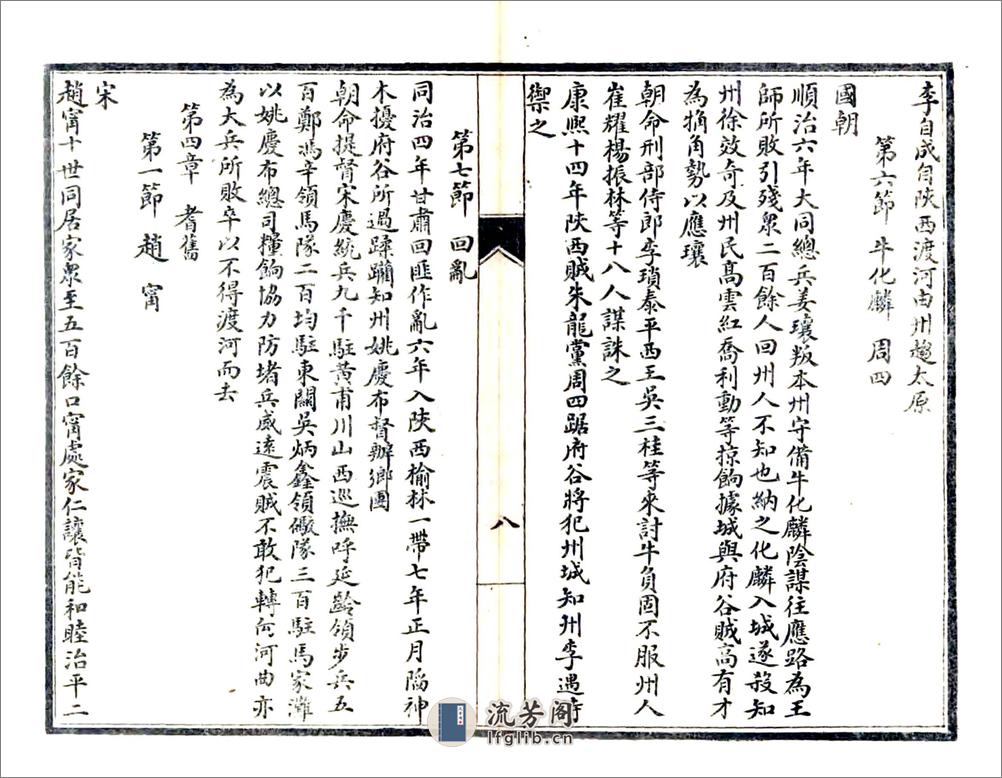 李自成自陝西渡河由州趨太原
第六節 牛化麟 周四
國朝
順治六年大同總兵姜瓖叛本州守備牛化麟陰謀往應路為王
師所敗引殘眾二百餘人回州人不知也納之化麟入城遂殺知
州徐效奇及州民高雲紅喬利動等掠餉據城與府谷賊高有才
為犄角勢以應瓖
朝命刑部侍郎李瑣泰平西王吳三桂等來討牛負固不服州人
崔耀楊振林等十八人謀誅之
康熙十四年陝西賊朱龍黨周四踞府谷將犯州城知州李遇時
禦之
八
第七節 回亂
同治四年甘肅回匪作亂六年入陝西榆林一帶七年正月陷神
木擾府谷所過蹂躪知州姚慶布督辦鄉團
朝命提督宋慶統兵九千駐黃甫川山西巡撫呼延齡領步兵五
百鄭馮辛領馬隊二百均駐東關吳炳鑫領礮隊三百駐馬家灘
以姚慶布總司糧餉協力防堵兵威遠震賊不敢犯轉向河曲亦
為大兵所敗卒以不得渡河而去
第四章 耆舊
第一節 趙甯
宋
趙甯十世同居家眾至五百餘口甯處家仁讓皆能和睦治平二
流芳阁
lfglib.cn